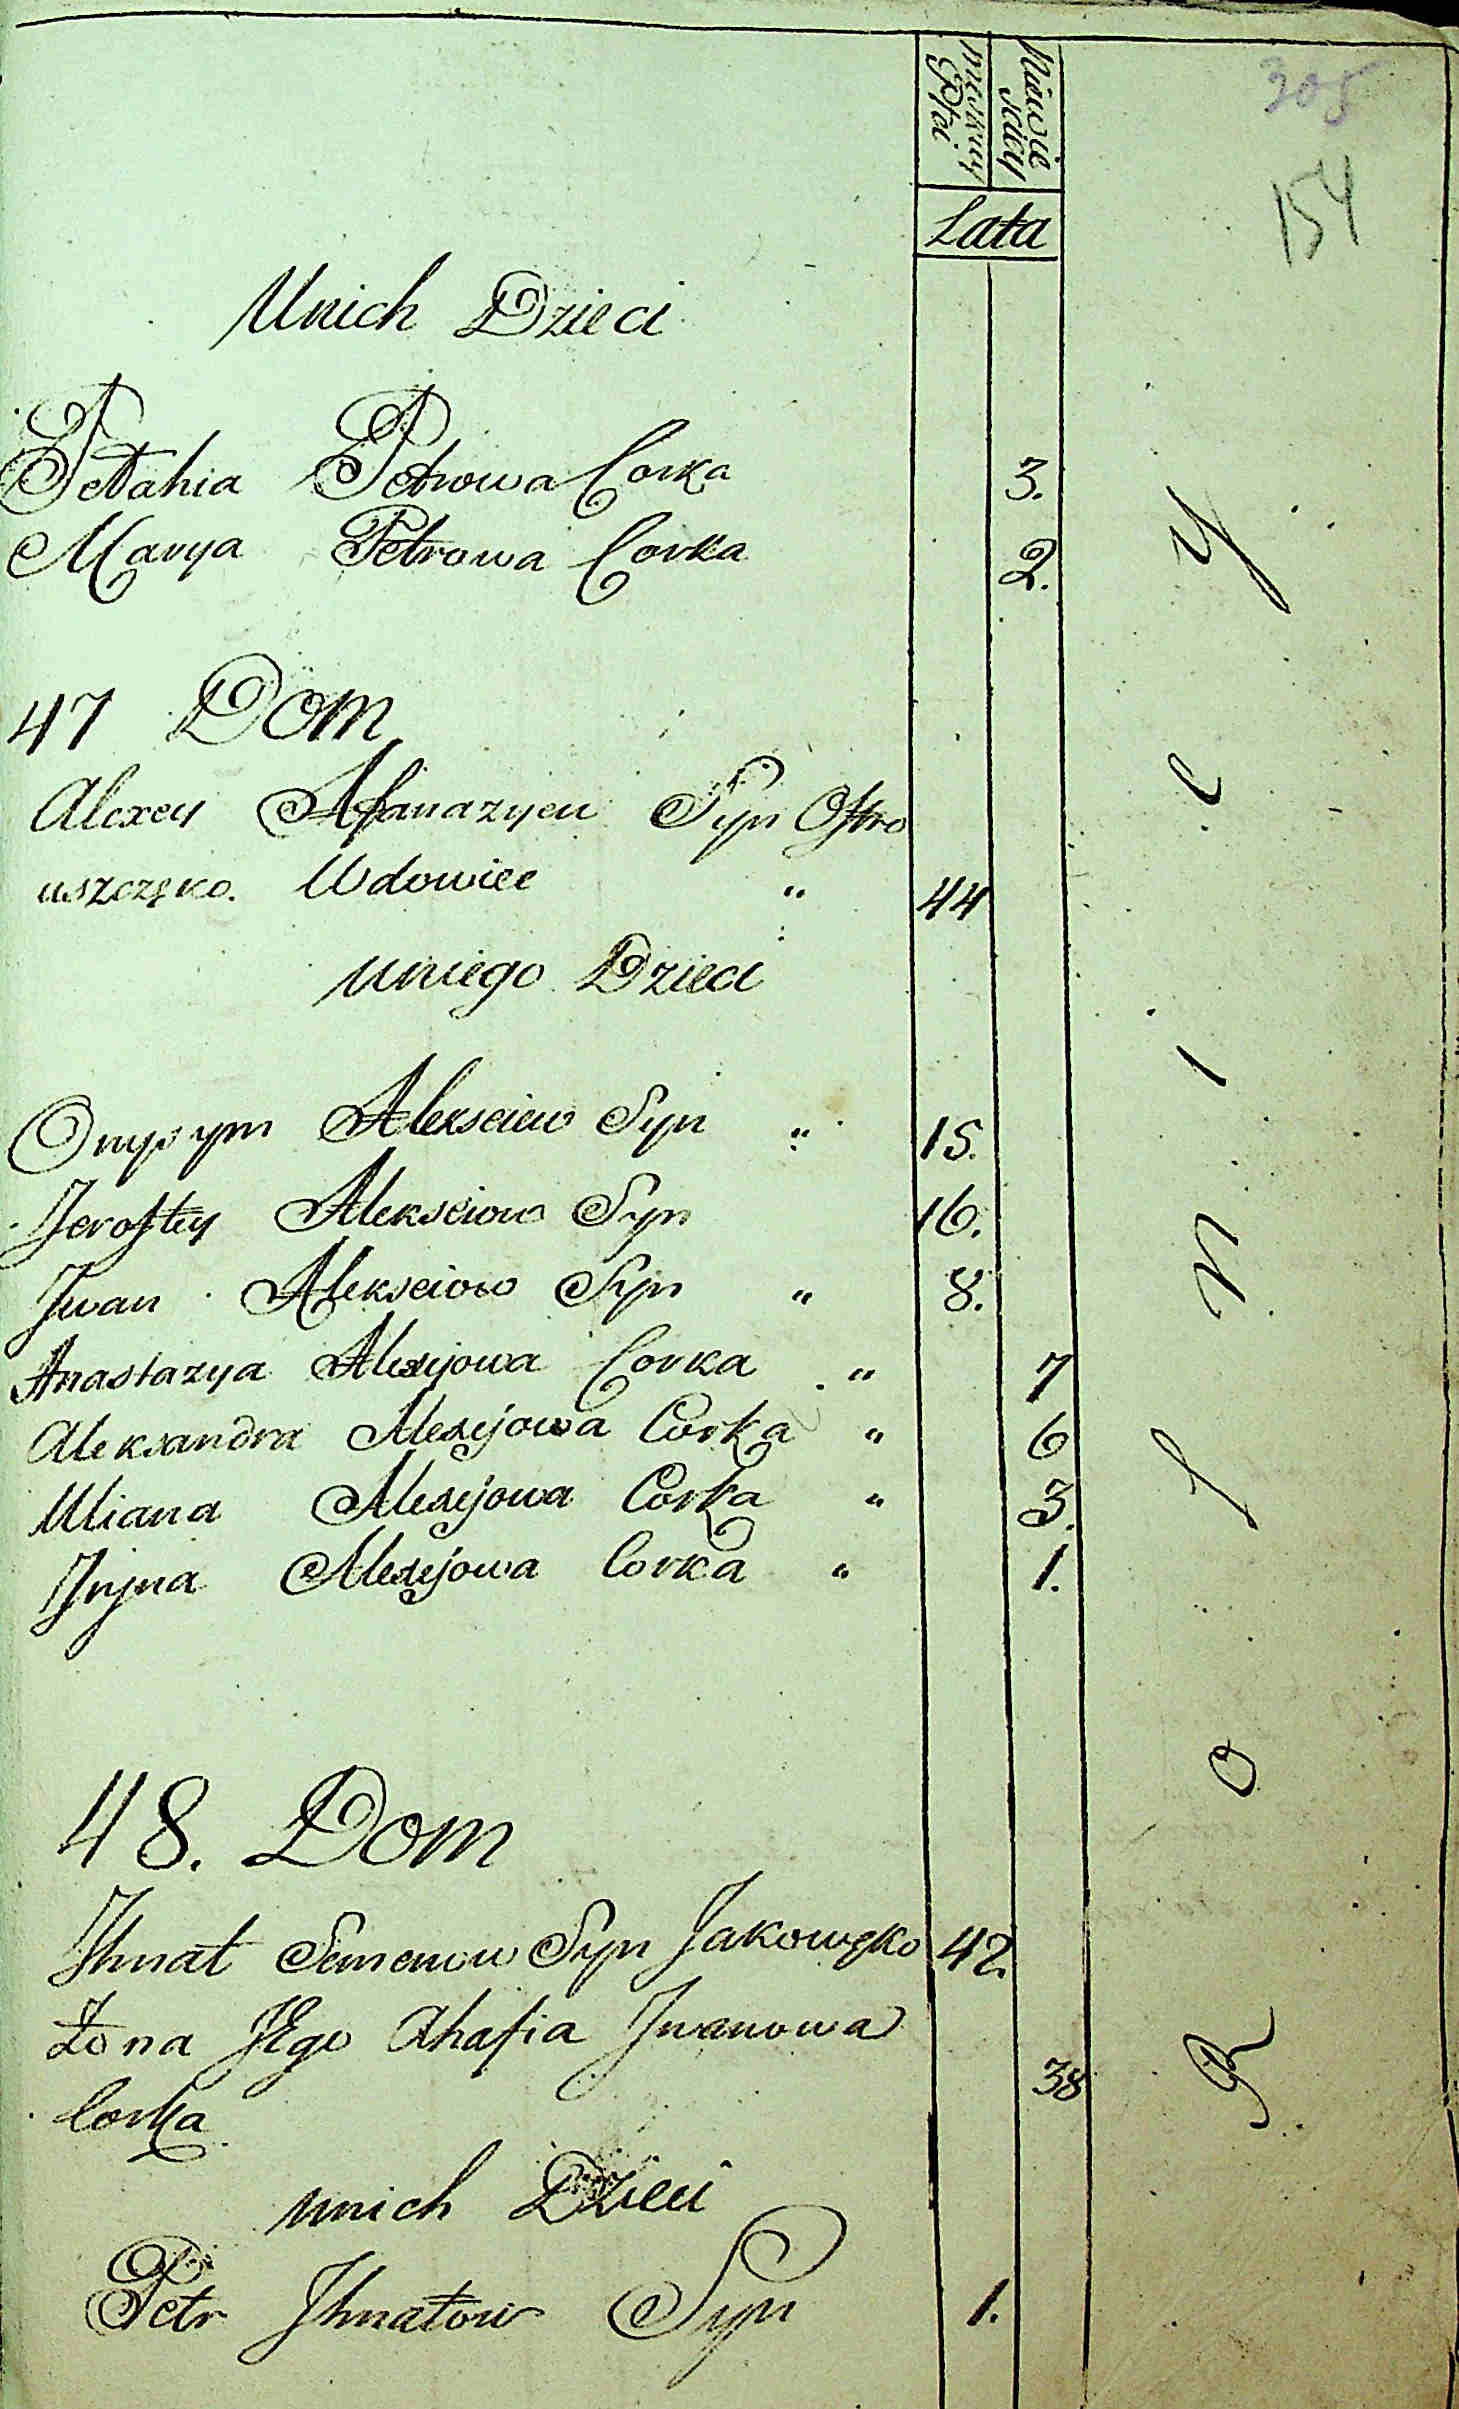 305
154
Męskiey Płci
Niewie sciey
Lata
Unich Dzieci
Pełahia Petrowa Corka 3.
Marya Petrowa Corka 2.
47 Dom
Alexey Afanazyeu Syn Ostro
uszczęko. Wdowiec " 44
uniego Dzieci
Onysym Alekseiew Syn " 15.
Jeroftey Alekseiow Syn 16.
Jwan Alekseiow Syn " 8.
Anastazya Alexejowa Corka " 7
Aleksandra Alexejowa Corka " 6
Uliana Alexejowa Corka " 3.
Jryna Alexejowa Corka " 1.
48. Dom
Jhnat Semenow Syn Jakowęko 42.
Żona JEgo Ahafia Jwanowa
Corka 38
unich Dzieci
Petr Jhnatow Syn 1.
R o l n i c y